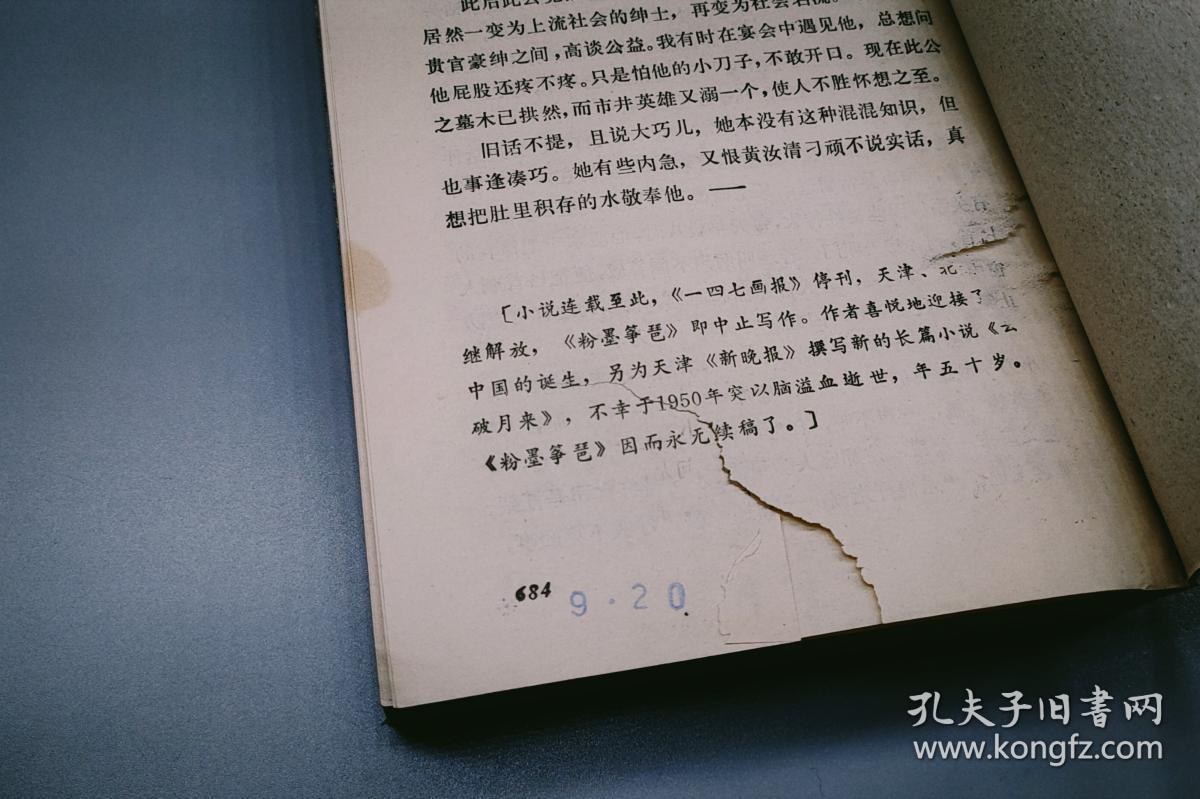 此后此公
居然一变为上流社会的绅士，再变为社会名流。
贵官豪绅之间，高谈公益。我有时在宴会中遇见他，总想问
他屁股还疼不疼。只是怕他的小刀子，不敢开口。现在此公
之墓木已拱然，而市井英雄又溺一个，使人不胜怀想之至。
旧话不提，且说大巧儿，她本没有这种混混知识，但
也事逢凑巧。她有些内急，又恨黄汝清刁顽不说实话，真
想把肚里积存的水敬奉他。——
［小说连载至此，《一四七画报》停刊，天津、北
继解放，《粉墨筝琶》即中止写作。作者喜悦地迎接了
中国的诞生，另为天津《新晚报》撰写新的长篇小说《云
破月来》，不幸于1950年突以脑溢血逝世，年五十岁。
《粉墨筝琶》因而永无续稿了。］
684
9·20
孔夫子旧書网
www.kongfz.com